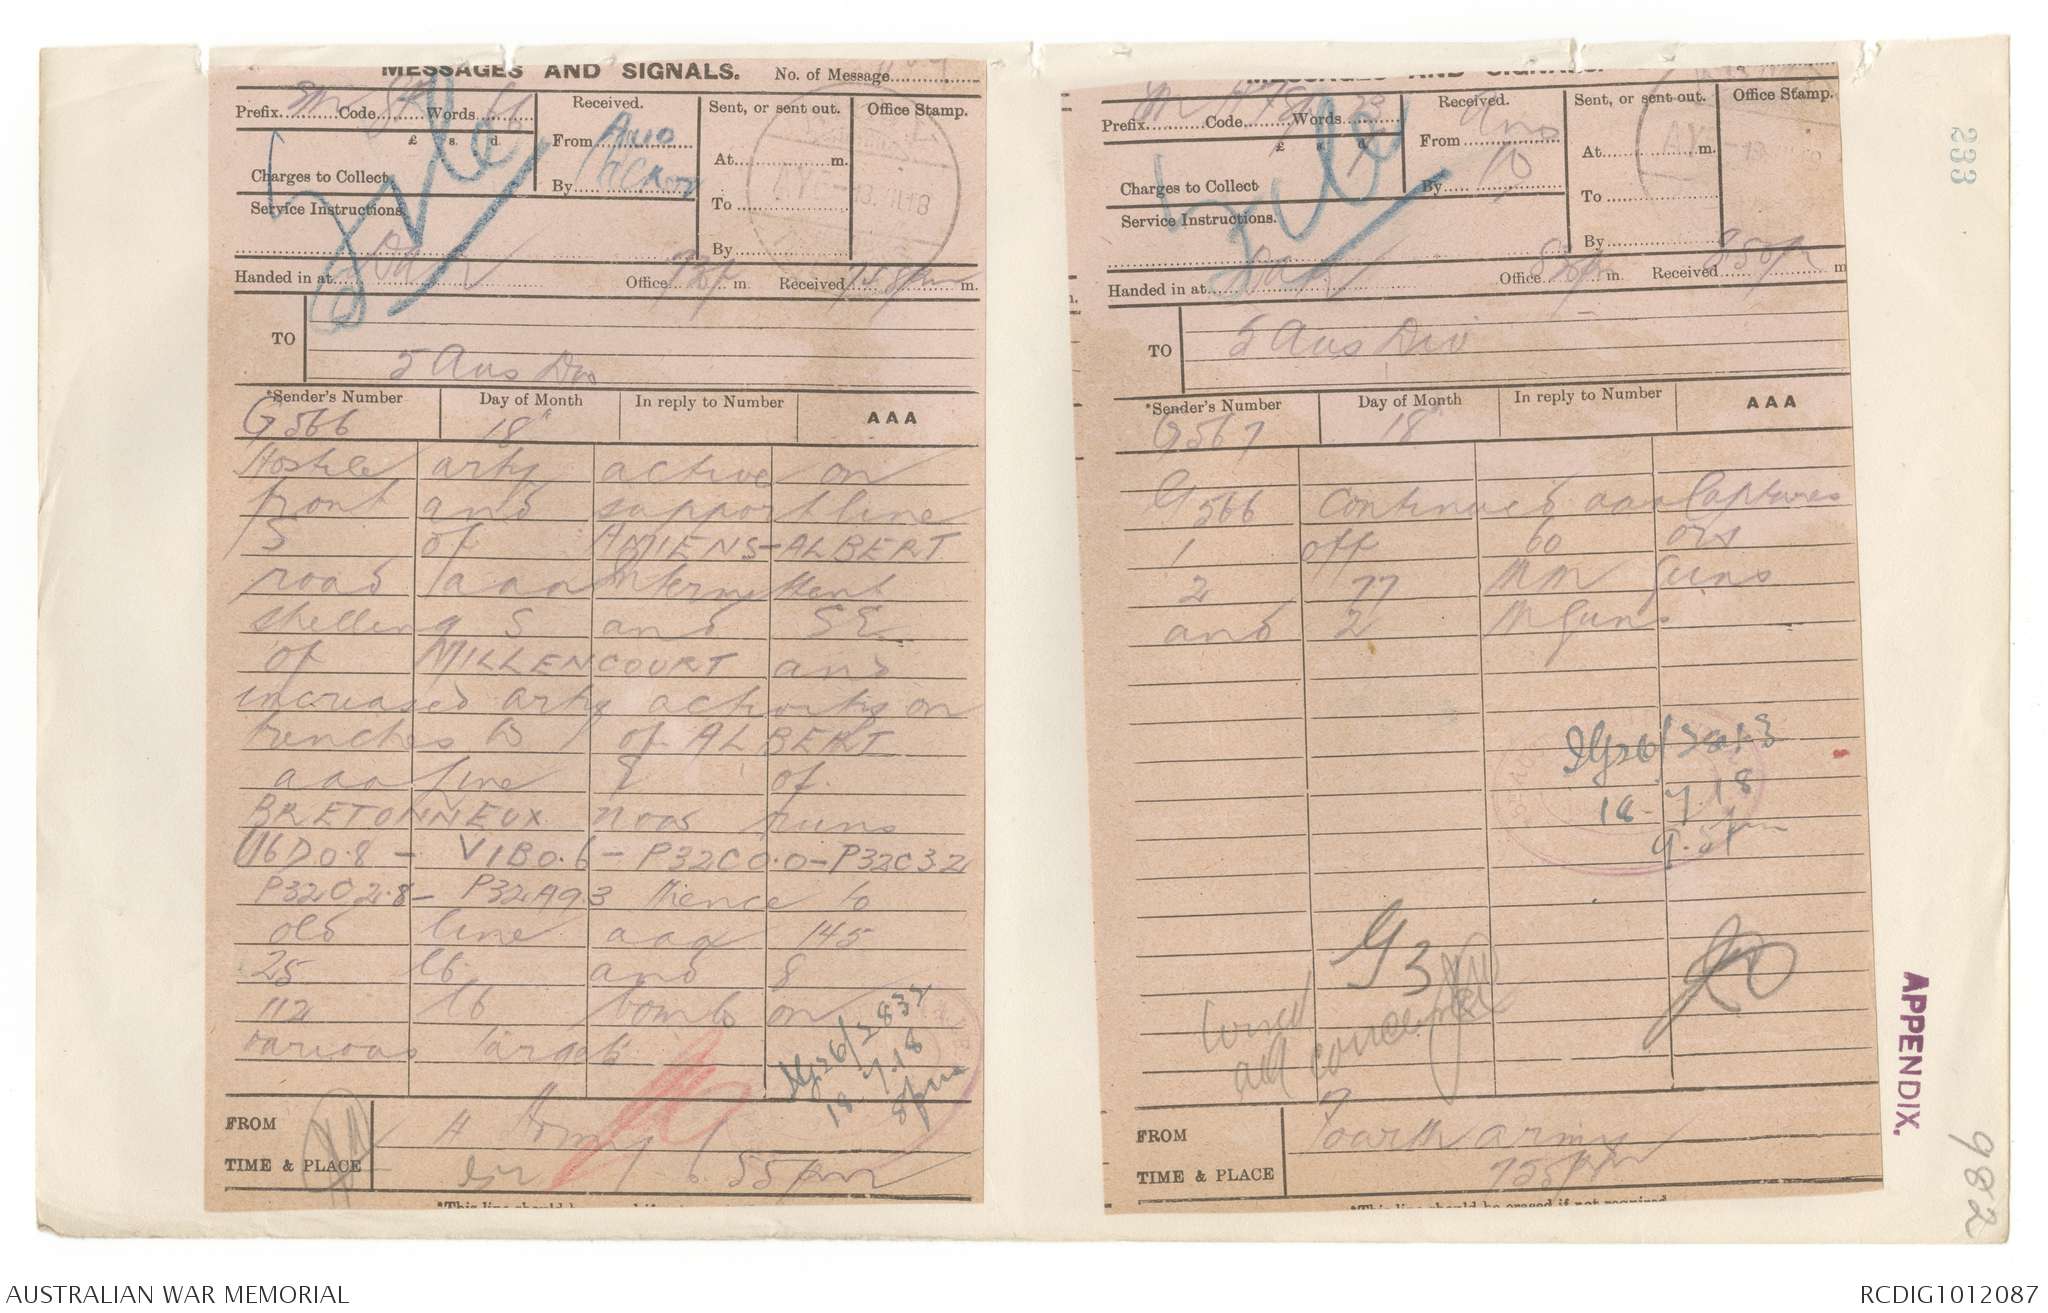 MESSAGES AND SIGNALS. No. of Message
Prefix Sm Code Words 66
£ s. d.
Charges to Collect
Service Instructions.
File
Received.
From
By
Sent, or sent out.
At m.
To
By
Office Stamp.
13.VII.18
Handed in at Office m. Received 758pm m.
TO
5 Aus Div
*Sender's Number Day of Month In reply to Number AAA
G566 18th
Hostile arty active on
front and support line
S of AMIENS-ALBERT
road aaa Intermittent
shelling S and SE
of MILLENCOURT and
increased arty activity on
trenches W of ALBERT
aaa Line E of
BRETONNEUX now runs
U6D0.8 - V1B0.6 - P32C0.0 - P32C3.2
P32C2.8 - P32A9.3 thence to
old line aaa 145
25 lb and 8
112 lb bombs on
various targets
Ig26/2832
18.7.18
8pm
FROM
TIME & PLACE
4 Army
655pm
*This line should be
MESSAGES AND SIGNALS.
Prefix Sm Code Words 23
£ s. d.
Charges to Collect
Service Instructions.
File
Received.
From Aus
By
Sent, or sent out.
At m.
To
By
Office Stamp.
Handed in at Office m. Received 850p m
TO
5 Aus Div
*Sender's Number Day of Month In reply to Number AAA
G567 18th
G566 Continued aaa Captures
1 off 60 ors
2 77 MM Guns
and 2 M Guns
18.7.18
9.5pm
G3
Wired
all concerned
FROM
TIME & PLACE
Fourth Army
755pm
*This line should be erased if not required
233
APPENDIX.
9882
AUSTRALIAN WAR MEMORIAL
RCDIG1012087